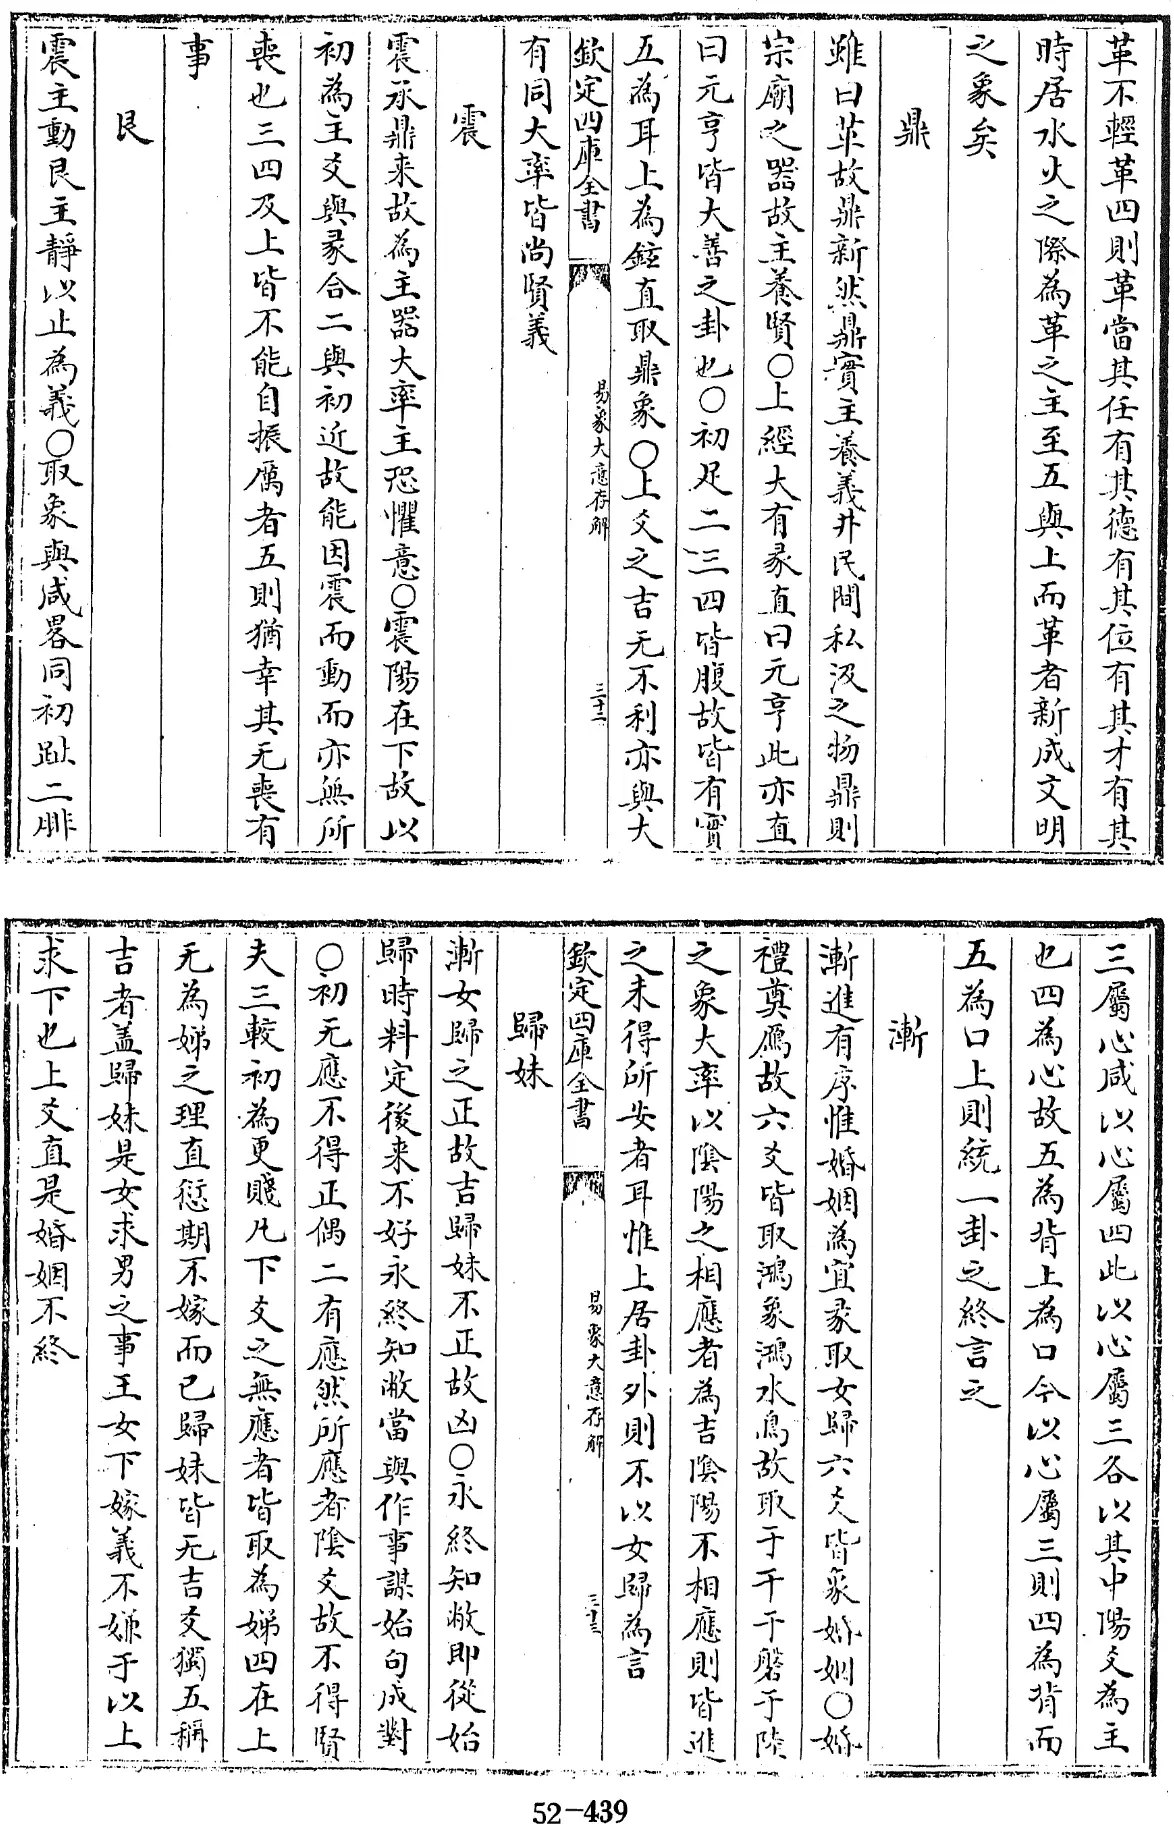 革不輕革四則革當其任有其德有其位有其才有其
時居水火之際為革之主至五與上而革者新成文明
之象矣
鼎
雖曰革故鼎新然鼎實主養義井民間私汲之物鼎則
宗廟之器故主養賢〇上經大有彖直曰元亨此亦直
曰元亨皆大善之卦也〇初足二三四皆腹故皆有實
五為耳上為鉉直取鼎象〇上爻之吉无不利亦與大
欽定四庫全書
易象大意存解
三十二
有同大率皆尚賢義
震
震承鼎來故為主器大率主恐懼意〇震陽在下故以
初為主爻與彖合二與初近故能因震而動而亦無所
喪也三四及上皆不能自振厲者五則猶幸其无喪有
事
艮
震主動艮主靜以止為義〇取象與咸畧同初趾二腓
三屬心咸以心屬四此以心屬三各以其中陽爻為主
也四為心故五為背上為口今以心屬三則四為背而
五為口上則統一卦之終言之
漸
漸進有序惟婚姻為宜彖取女歸六爻皆象婚姻〇婚
禮奠鴈故六爻皆取鴻象鴻水鳥故取于干于磐于陸
之象大率以陰陽之相應者為吉陰陽不相應則皆進
之未得所安者耳惟上居卦外則不以女歸為言
欽定四庫全書
易象大意存解
三十三
歸妹
漸女歸之正故吉歸妹不正故凶〇永終知敝即從始
歸時料定後來不好永終知敝當與作事謀始句成對
〇初无應不得正偶二有應然所應者陰爻故不得賢
夫三較初為更賤凡下爻之無應者皆取為娣四在上
无為娣之理直愆期不嫁而已歸妹皆无吉爻獨五稱
吉者蓋歸妹是女求男之事王女下嫁義不嫌于以上
求下也上爻直是婚姻不終
52-439